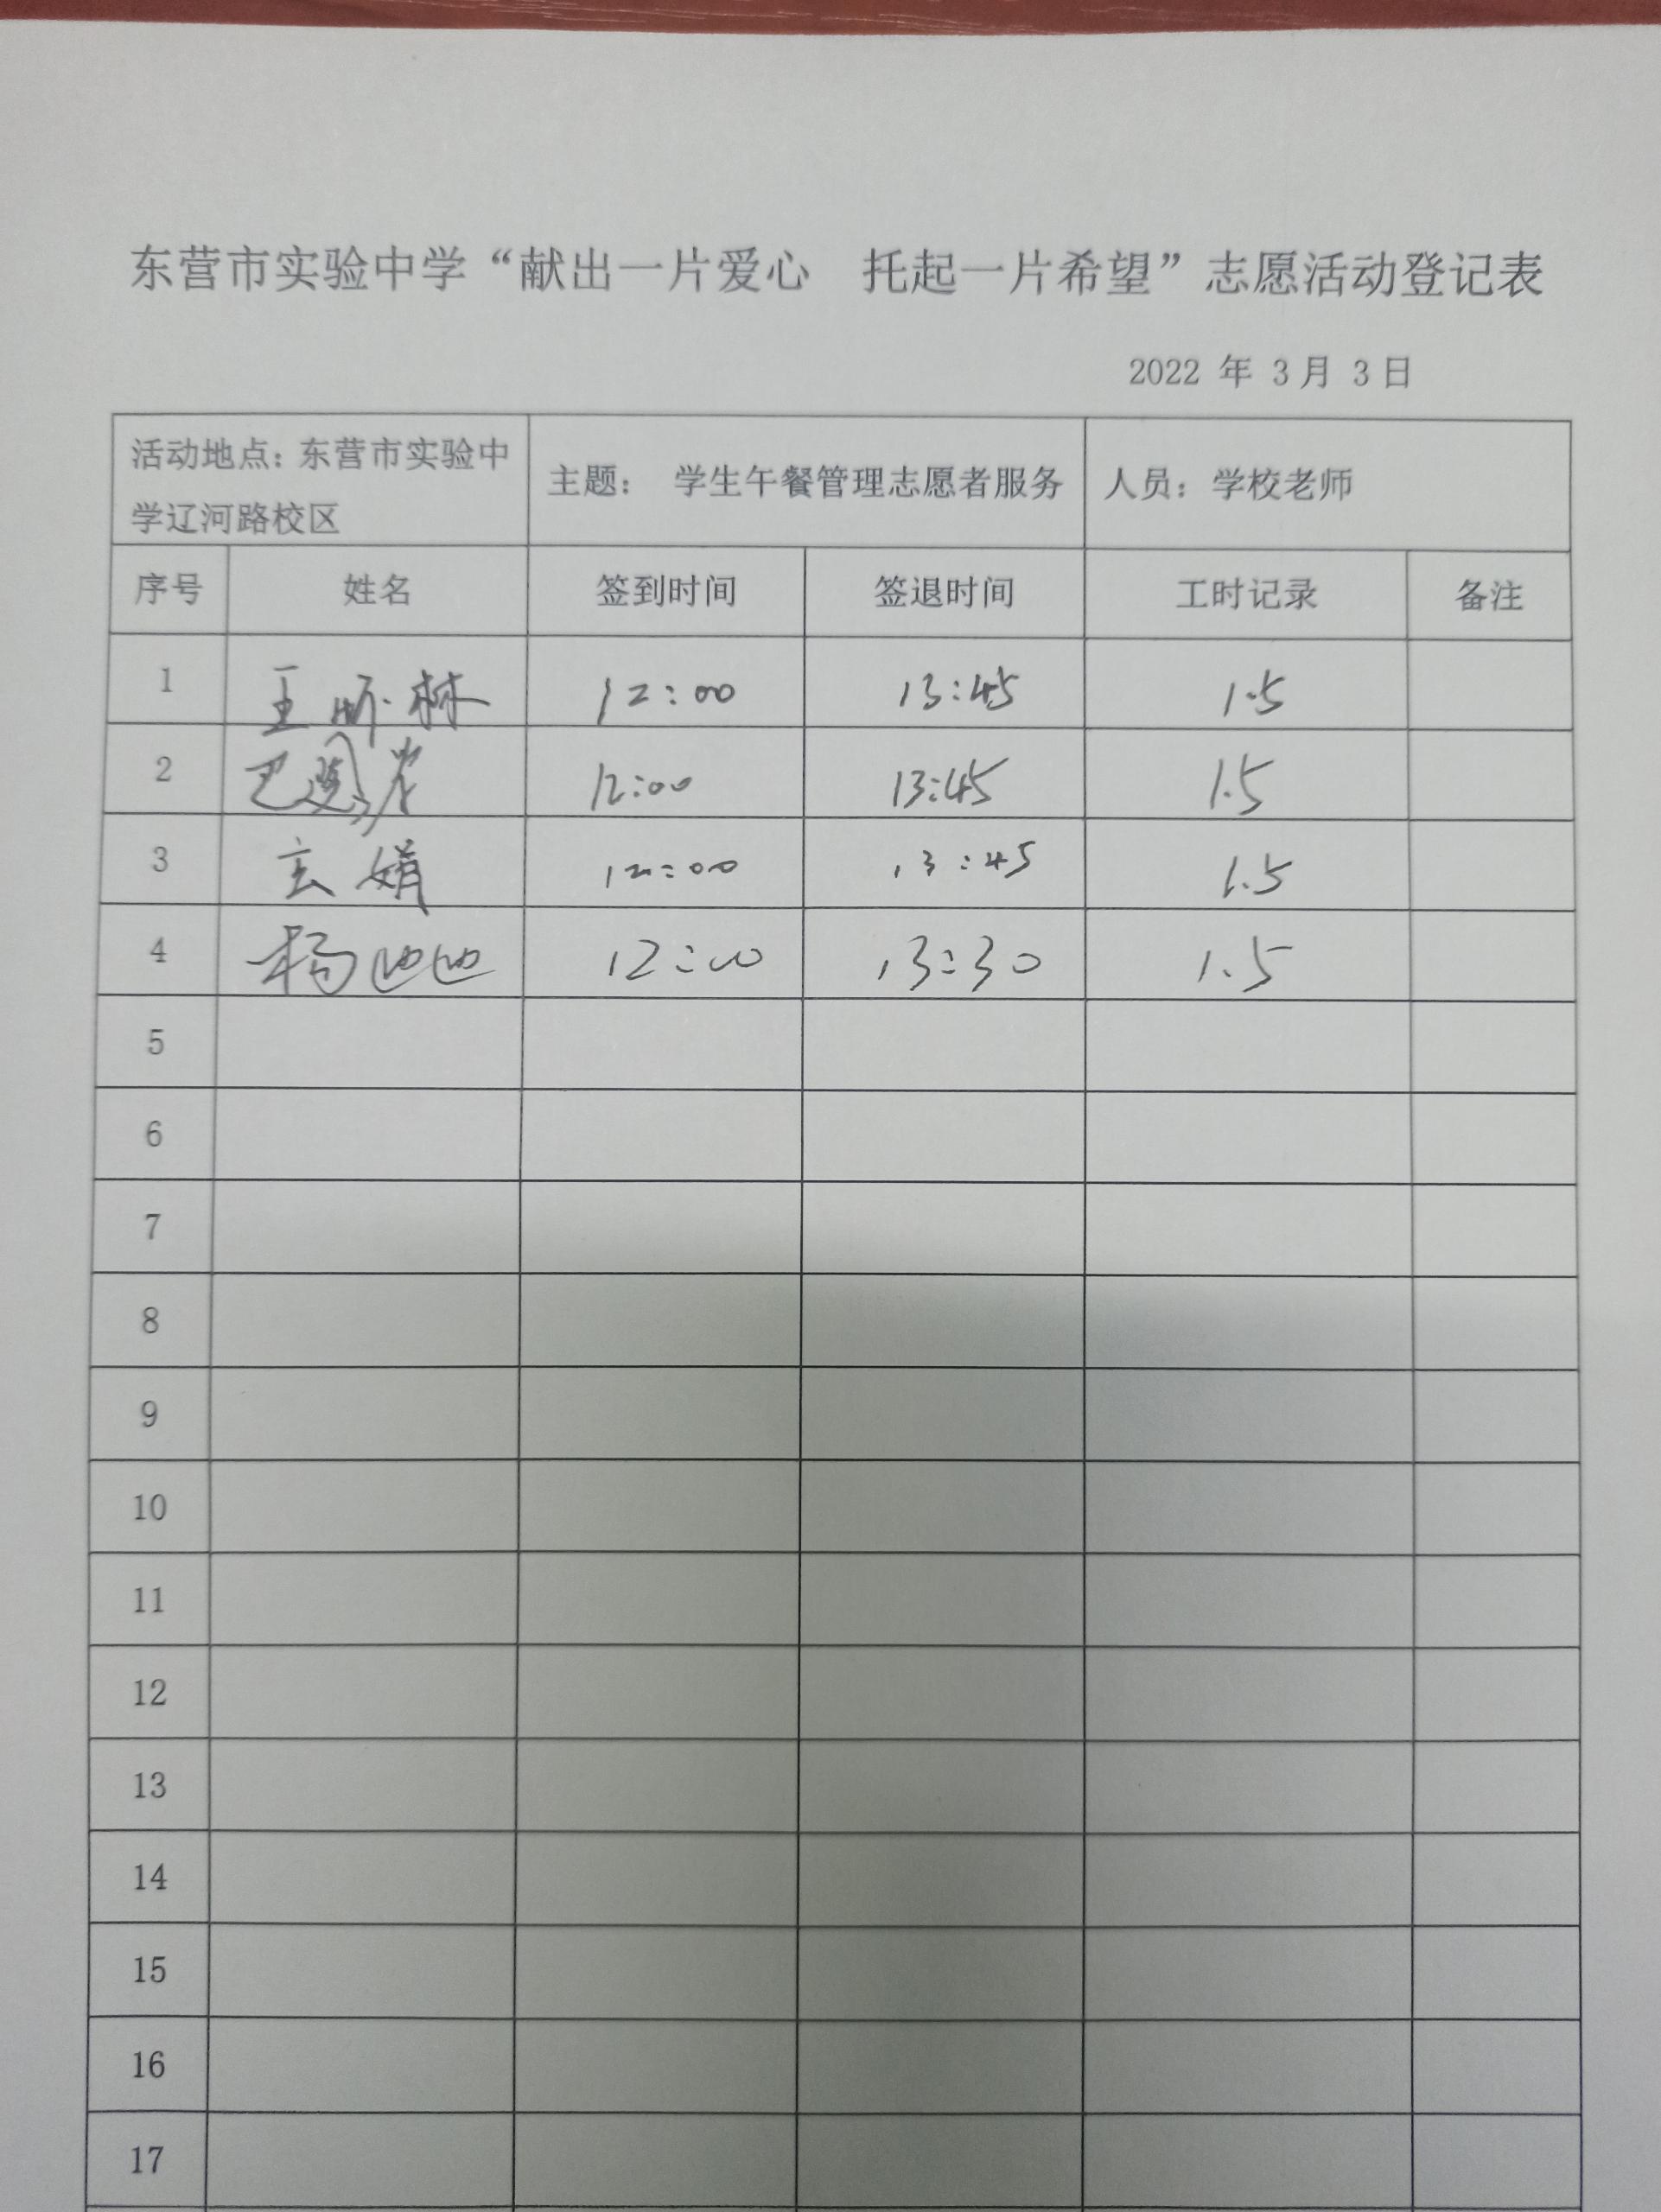 东营市实验中学“献出一片爱心 托起一片希望”志愿活动登记表
2022 年 3月 3日
活动地点：东营市实验中
学辽河路校区
主题： 学生午餐管理志愿者服务
人员：学校老师
序号 姓名 签到时间 签退时间 工时记录 备注
1 王 林 12:00 13:45 1.5
2 巴 12:00 13:45 1.5
3 玄娟 12:00 13:45 1.5
4 杨 12:00 13:30 1.5
5
6
7
8
9
10
11
12
13
14
15
16
17